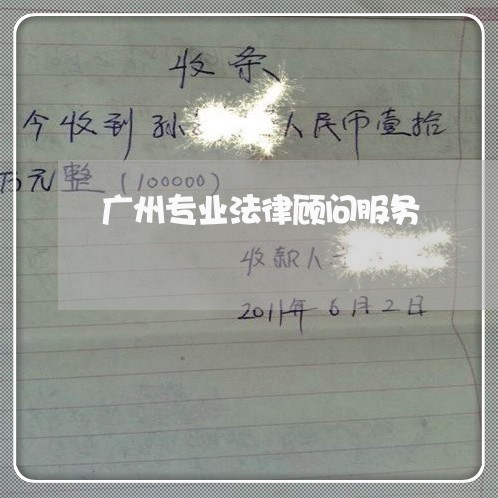 收条
今收到孙人民币壹拾
万元整(100000)
广州专业法律顾问服务
收款人
2011年6月2日